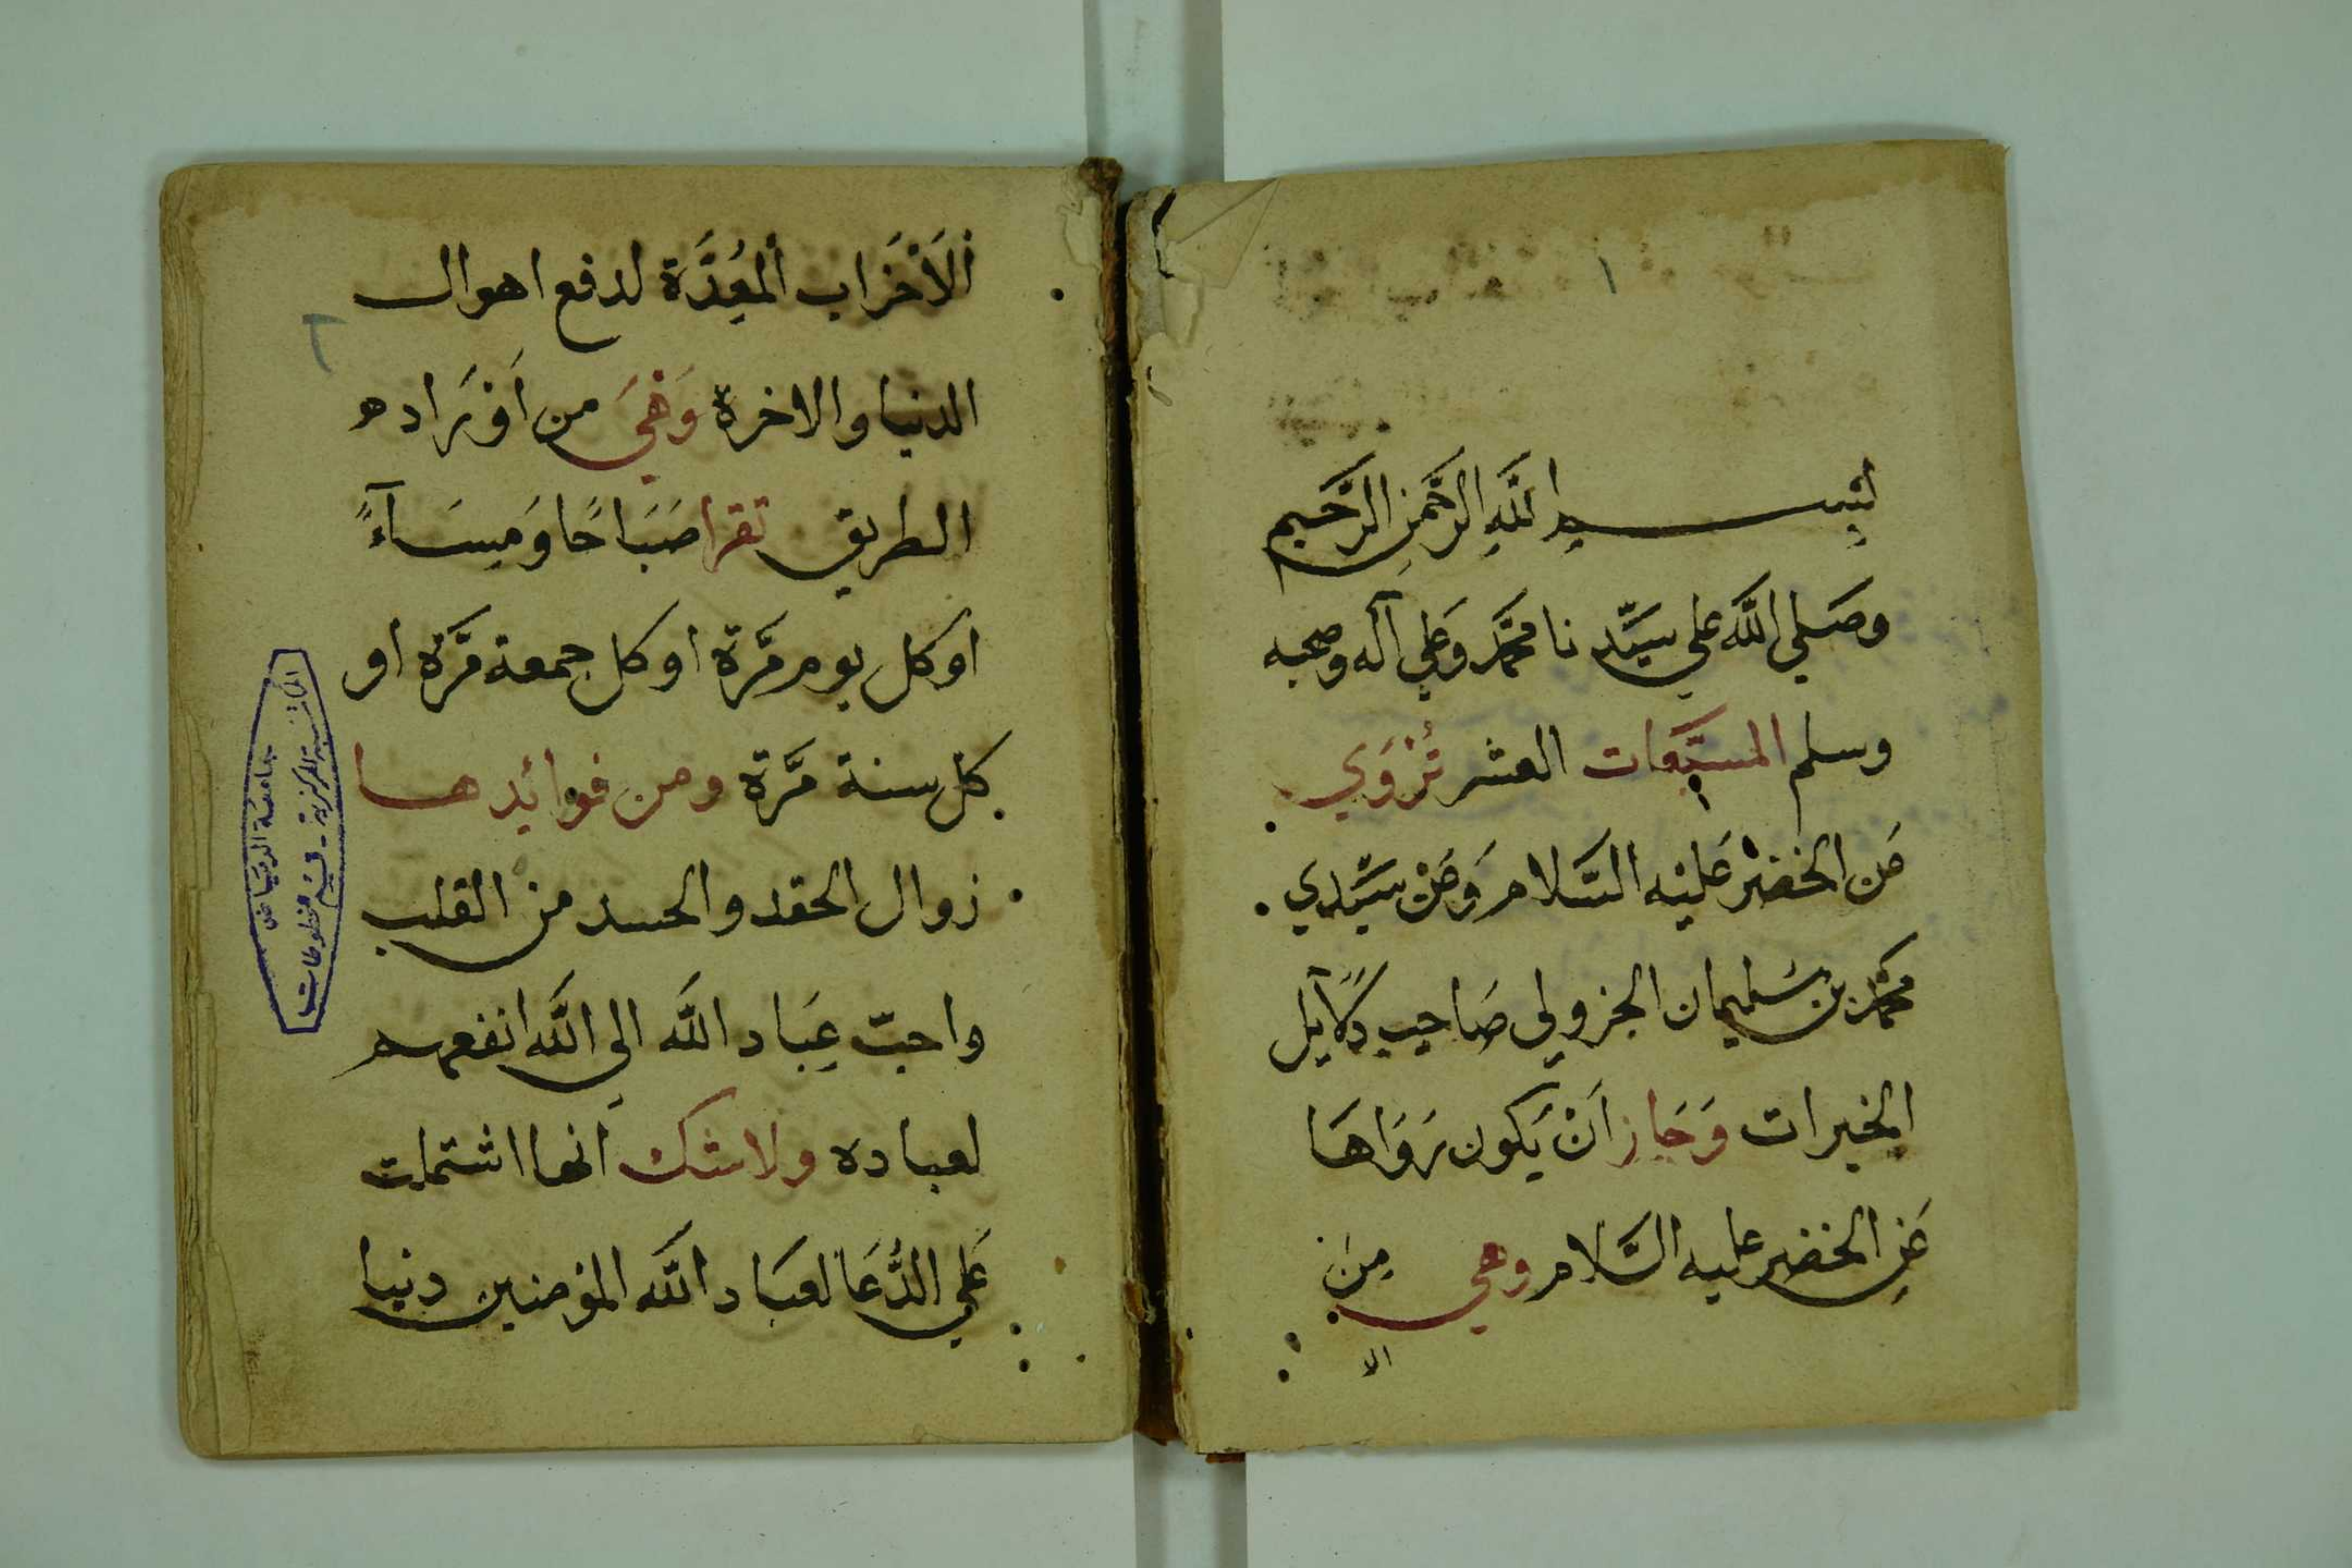 ١
بِسْمِ اللَّهِ الرَّحْمَنِ الرَّحِيمِ
وصَلي اللَّه علي سَيّدنا محمَّد وَعَلي آله وصحبه
وسلم المسبّعَات العشر تُرْوَي
عَن الخضر عَليْه السَّلام وَعَنْ سَيّدِي
محمَّد بن سُليمان الجزولي صَاحِب دَلَآيل
الخيرات وَجَاز اَنْ يَكون رَوَاهَا
عَنِ الخضر عليه السَّلام وهي مِنَ
الا
٢
اَلْاَحْزَاب اَلمُعِدَّة لدفع اهوال
الدنيا والاخرة وَهْيَ من اَوْرَاده
الطريق تقرا صَبَاحًا وَمِسَآءً
أو كل يوم مَرَّة أو كل جمعة مَرَّة أو
كل سنة مَرَّة ومن فوائدها
زوال الحقد والحسد من القلب
واحبّ عِبَاد اللَّه الي اللَّه انفعهم
لعباده ولاشك انها اشتملت
عَلي الدُّعَا لعبَاد اللَّه المؤمنين دنيا
جامعة الرياض
المكتبة المركزية - قسم مخطوطات